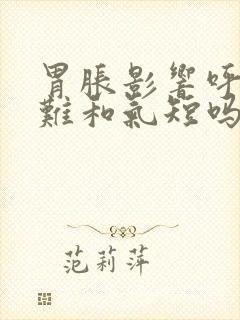 胃脹影響呼
難和氣短嗎
范莉萍